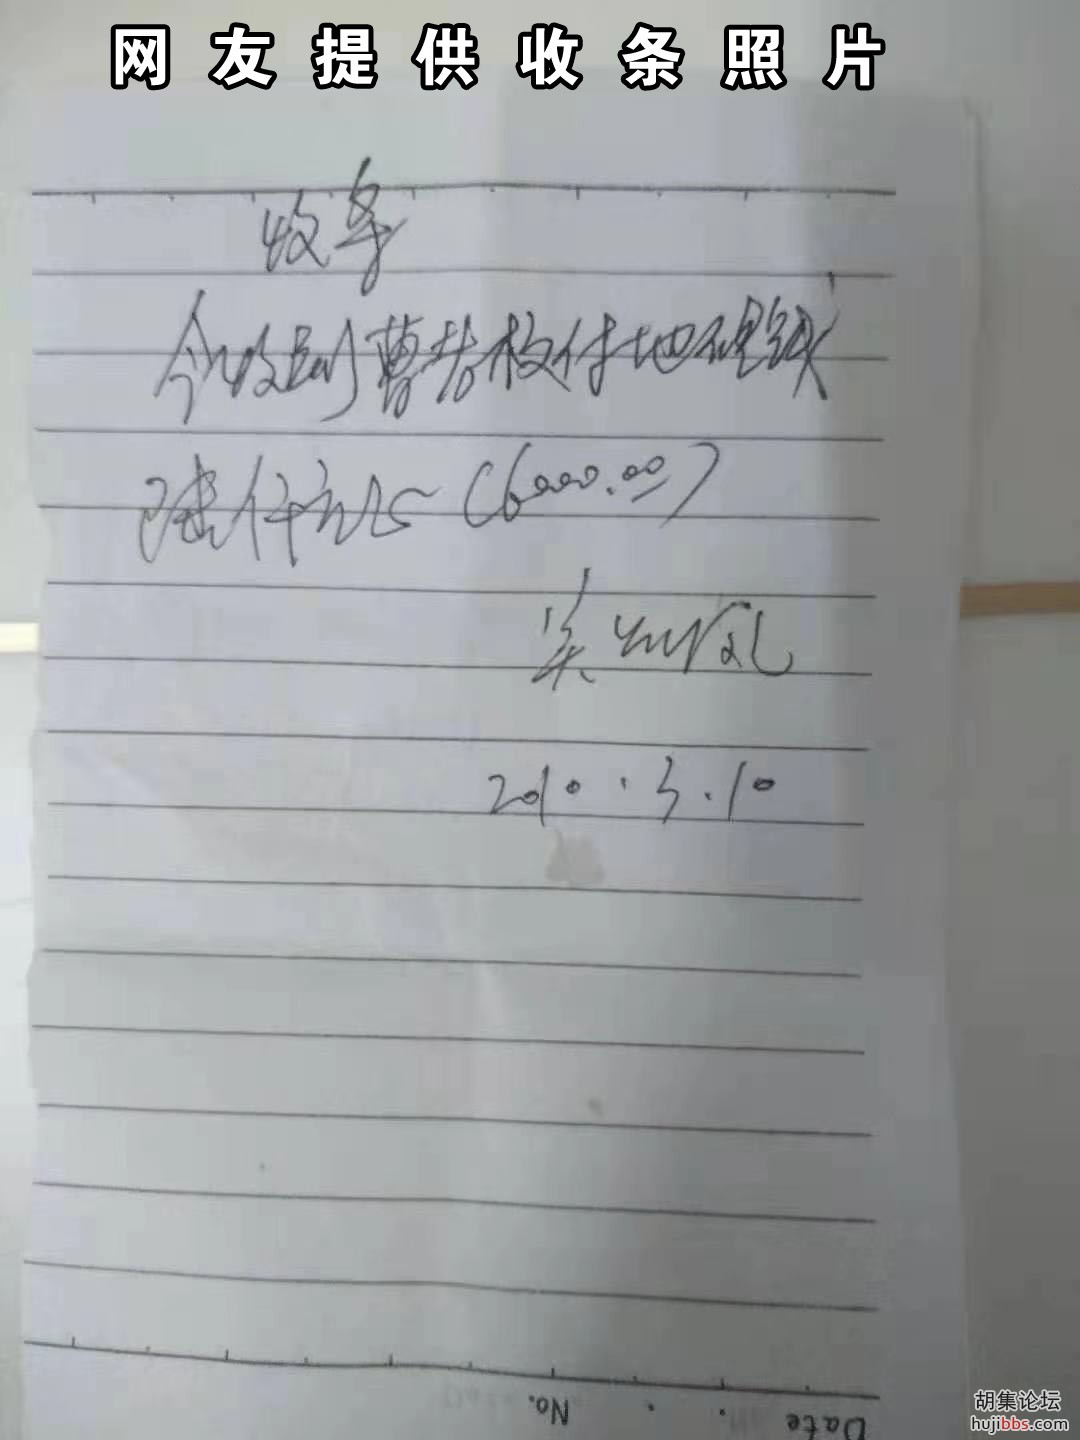 网友提供收条照片
收条
今收到曹 枝付地 钱
陆仟元 (6000.00)
吴
2010.3.10
No.
Date
胡集论坛
hujibbs.com